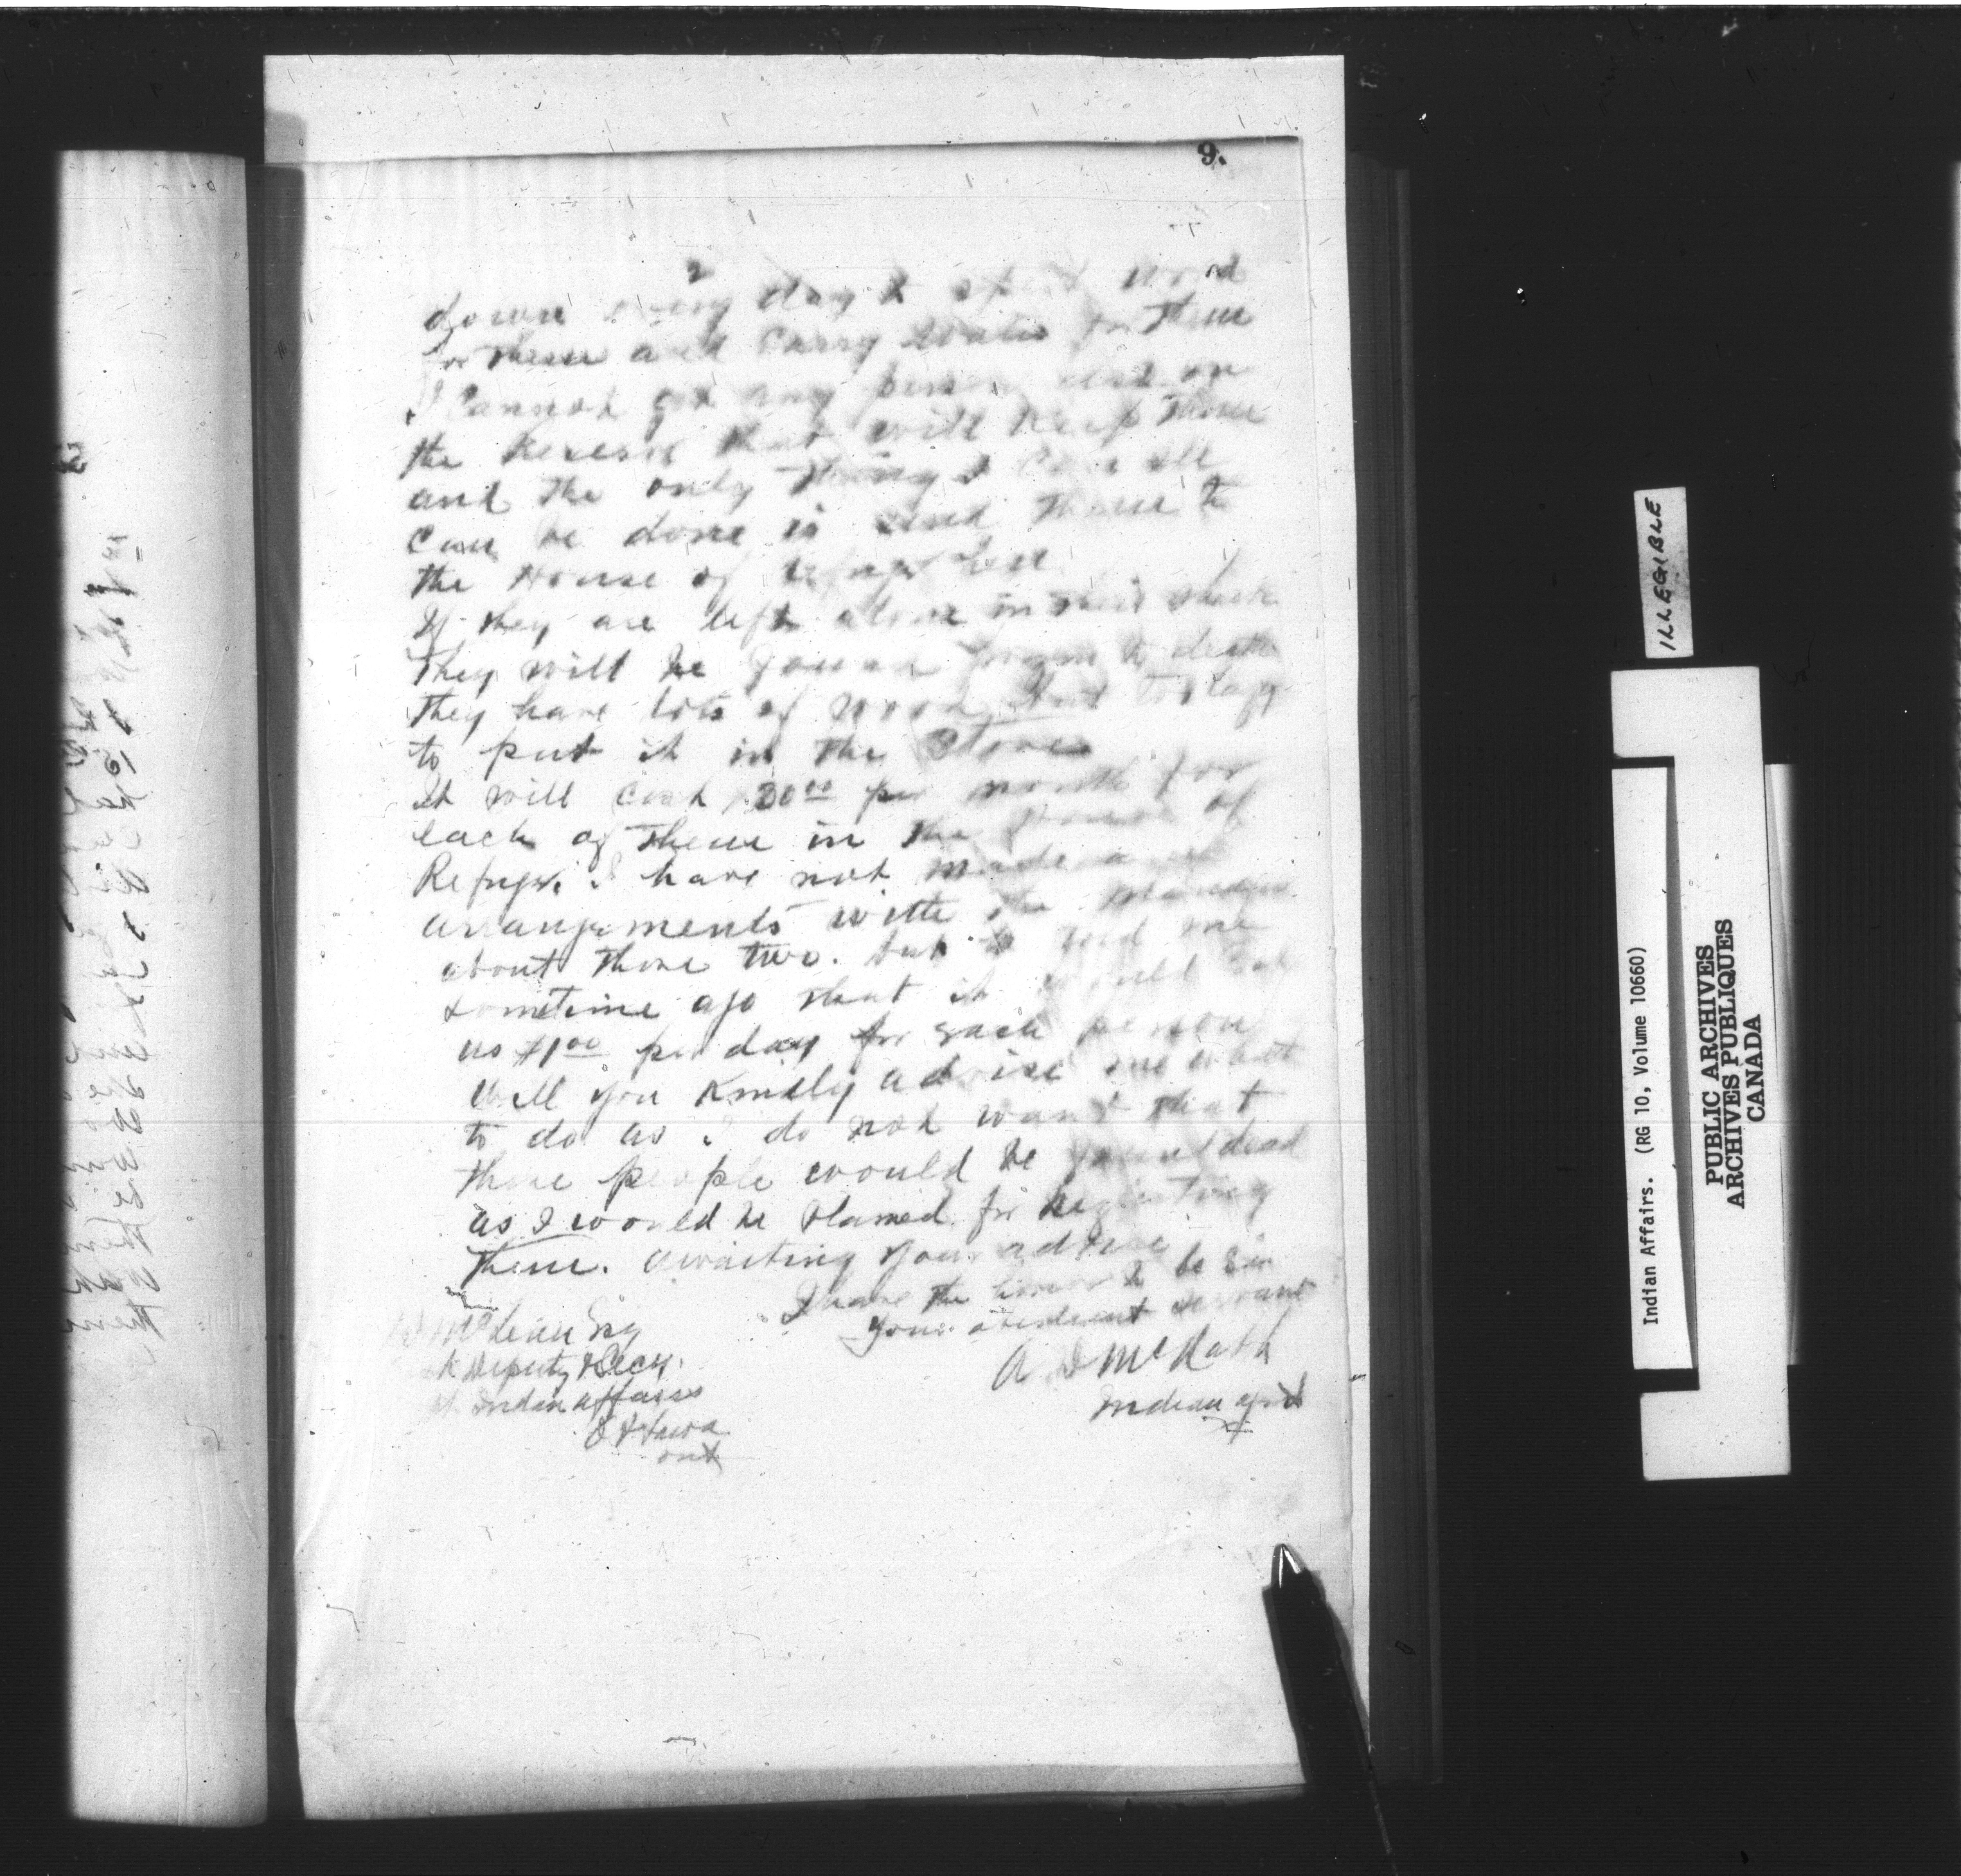 9.
2
down every day to split wood
for them and carry water for them
I cannot get any person else on
the Reserve that will keep them
and the only thing I can see
can be done is send them to
the House of Refuge here
If they are left alone in their shack
They will be found frozen to death
They have lots of wood but to lazy
to put it in the Stove
It will cost 30.00 per month for
each of them in the House of
Refuge. I have not made any
arrangements with the Manager
about those two. but he told me
sometime ago that it would cost
us $1.00 per day for each person
Will you kindly advise me what
to do as I do not want that
those people would be found dead
as I would be blamed for neglecting
them. awaiting your advise
I have the honor to be Sir
Your obedient servant
McLean Esq
Deputy & Secy.
Indian Affairs
Ottawa
ont
A D McNabb
Indian agent
ILLEGIBLE
Indian Affairs. (RG 10, Volume 10660)
PUBLIC ARCHIVES
ARCHIVES PUBLIQUES
CANADA